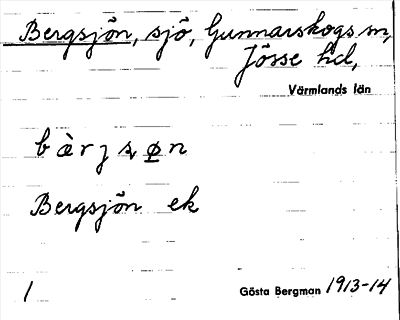 Bergsjön, sjö, Gunnarskogs sn,
Jösse hd,
Värmlands län
Bergsjön ek
1
Gösta Bergman 1913-14